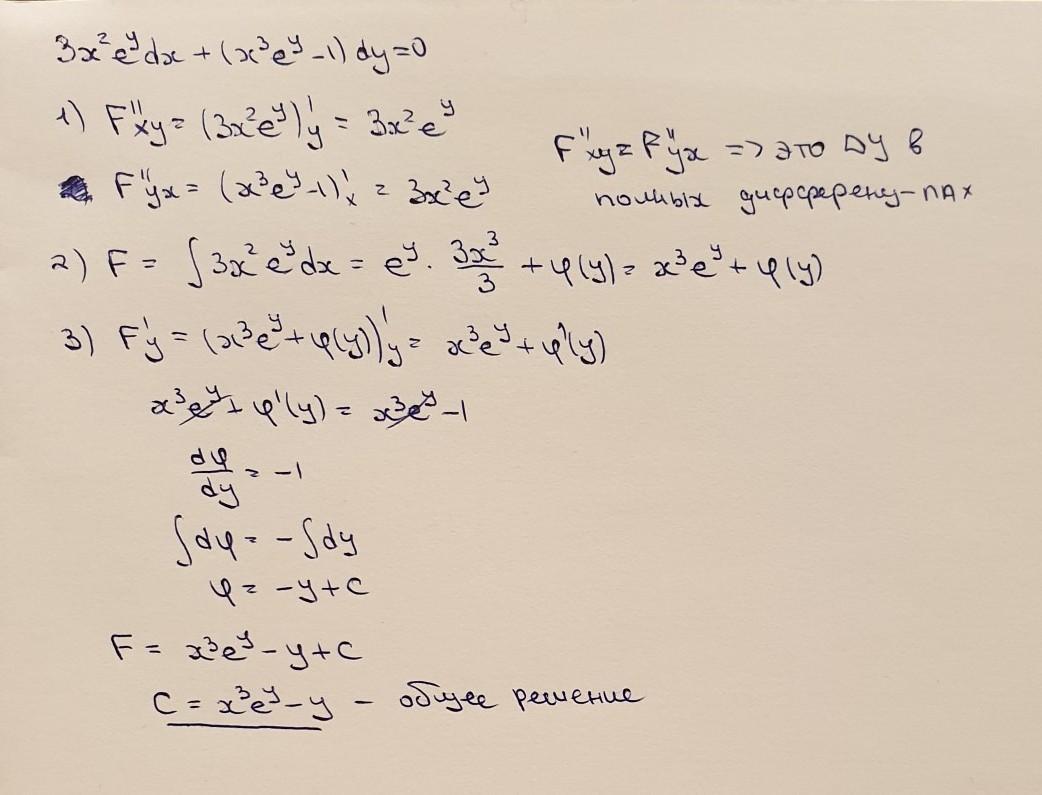 3x²eʸdx + (x³eʸ - 1) dy = 0
1) F''xy = (3x²eʸ)'y = 3x²eʸ
F''yx = (x³eʸ - 1)'x = 3x²eʸ
F''xy = F''yx => это ДУ в
полных дифференц-лах
2) F = ∫3x²eʸdx = eʸ · 3x³/3 + φ(y) = x³eʸ + φ(y)
3) F'y = (x³eʸ + φ(y))'y = x³eʸ + φ'(y)
x³eʸ + φ'(y) = x³eʸ - 1
dφ/dy = -1
∫dφ = -∫dy
φ = -y + C
F = x³eʸ - y + C
C = x³eʸ - y - общее решение